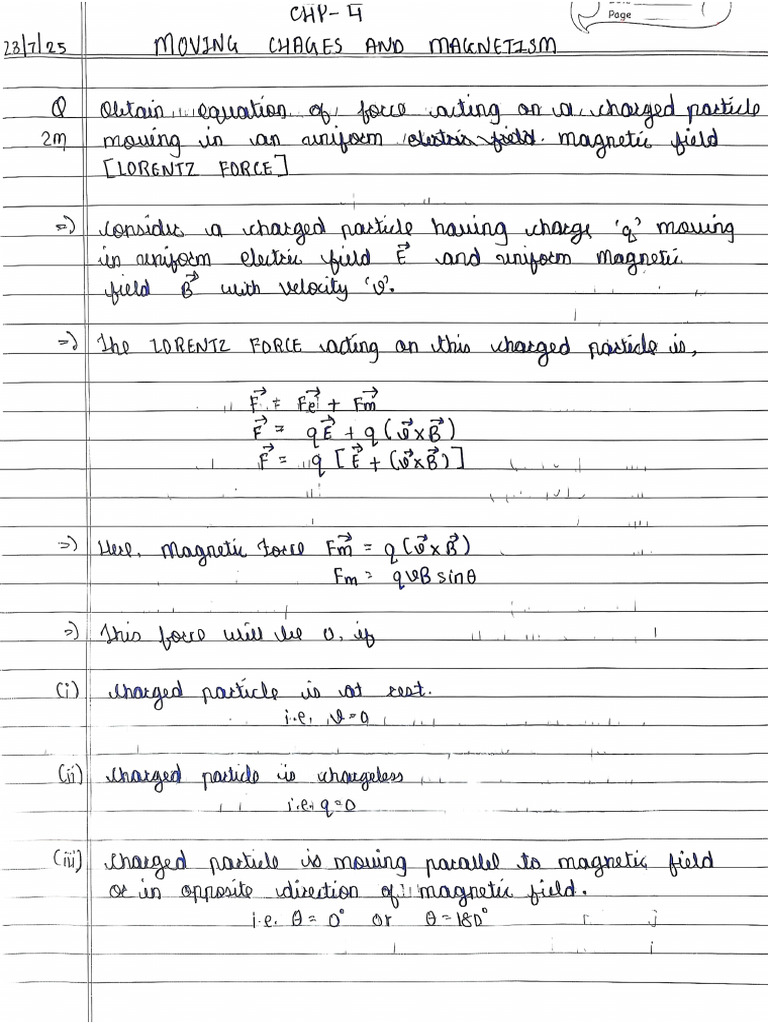 CHP-4
Page
23/7/25 MOVING CHAGES AND MAGNETISM
Q Obtain equation of force acting on a charged particle
2m moving in an uniform electric field. magnetic field
[LORENTZ FORCE]
=) Consider a charged particle having charge 'q' moving
in uniform electric field E⃗ and uniform magnetic
field B⃗ with velocity 'v'.
=) The LORENTZ FORCE acting on this charged particle is,
F⃗ = Fe⃗ + Fm⃗
F⃗ = qE⃗ + q(v⃗×B⃗)
F⃗ = q[E⃗ + (v⃗×B⃗)]
=) Here, Magnetic Force Fm⃗ = q(v⃗×B⃗)
Fm = qvB sinθ
=) This force will be 0, if
(i) Charged particle is at rest.
i.e, v=0
(ii) Charged particle is chargeless
i.e, q=0
(iii) Charged particle is moving parallel to magnetic field
or in opposite direction of magnetic field.
i.e. θ = 0° or θ=180°